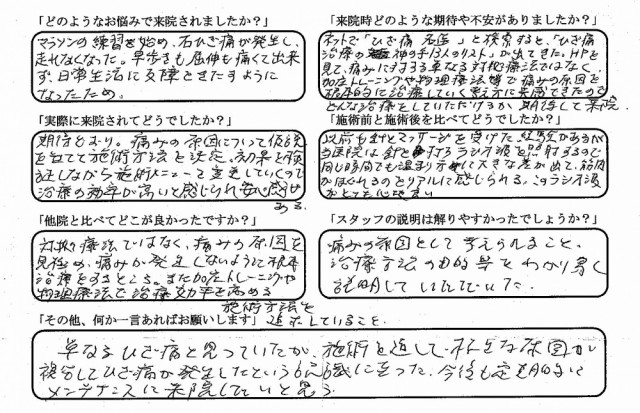 「どのようなお悩みで来院されましたか？」
マラソンの練習を始め、右ひざ痛が発生し、
走れなくなった。早歩きも屈伸も痛くて出来
ず、日常生活に支障をきたすように
なったため。
「来院時どのような期待や不安がありましたか？」
ネットで「ひざ痛 名医」と検索すると、「ひざ痛
治療の 神の手13人のリスト」が出てきた。HPを
見て、痛みに対する単なる対処療法ではなく
加圧トレーニングや物理療法等で痛みの原因を
根本的に治療していく考え方に共感できたので
どんな治療をしていただけるか期待して来院。
「実際に来院されてどうでしたか？」
期待どおり。痛みの原因について仮説
を立てて施術方法を決定。効果を検
証しながら施術メニューを変更していくので
治療の効率が高いと感じられ安心感が
ある。
「施術前と施術後を比べてどうでしたか？」
以前も針とマッサージを受けた経験があるが
当医院は針を打ちラジオ波を照射するので
同じ時間でも温まり方 大きな差が出て、筋肉
がほぐれるのをリアルに感じられる。このラジオ波
がとても心地良い
「他院と比べてどこが良かったですか？」
対処療法ではなく、痛みの原因を
見極め、痛みが発生しないように根本
治療をするところ。また加圧トレーニングや
物理療法で治療効率を高める
施術方法を
追求していること。
「スタッフの説明は解りやすかったでしょうか？」
痛みの原因として考えられること、
治療方法の目的等をわかり易く
説明していただいた。
「その他、何か一言あればお願いします」
単なるひざ痛と思っていたが、施術を通して、様々な原因が
複合してひざ痛が発生したという 認識に至った。今後も定期的に
メンテナンスに来院したいと思う。